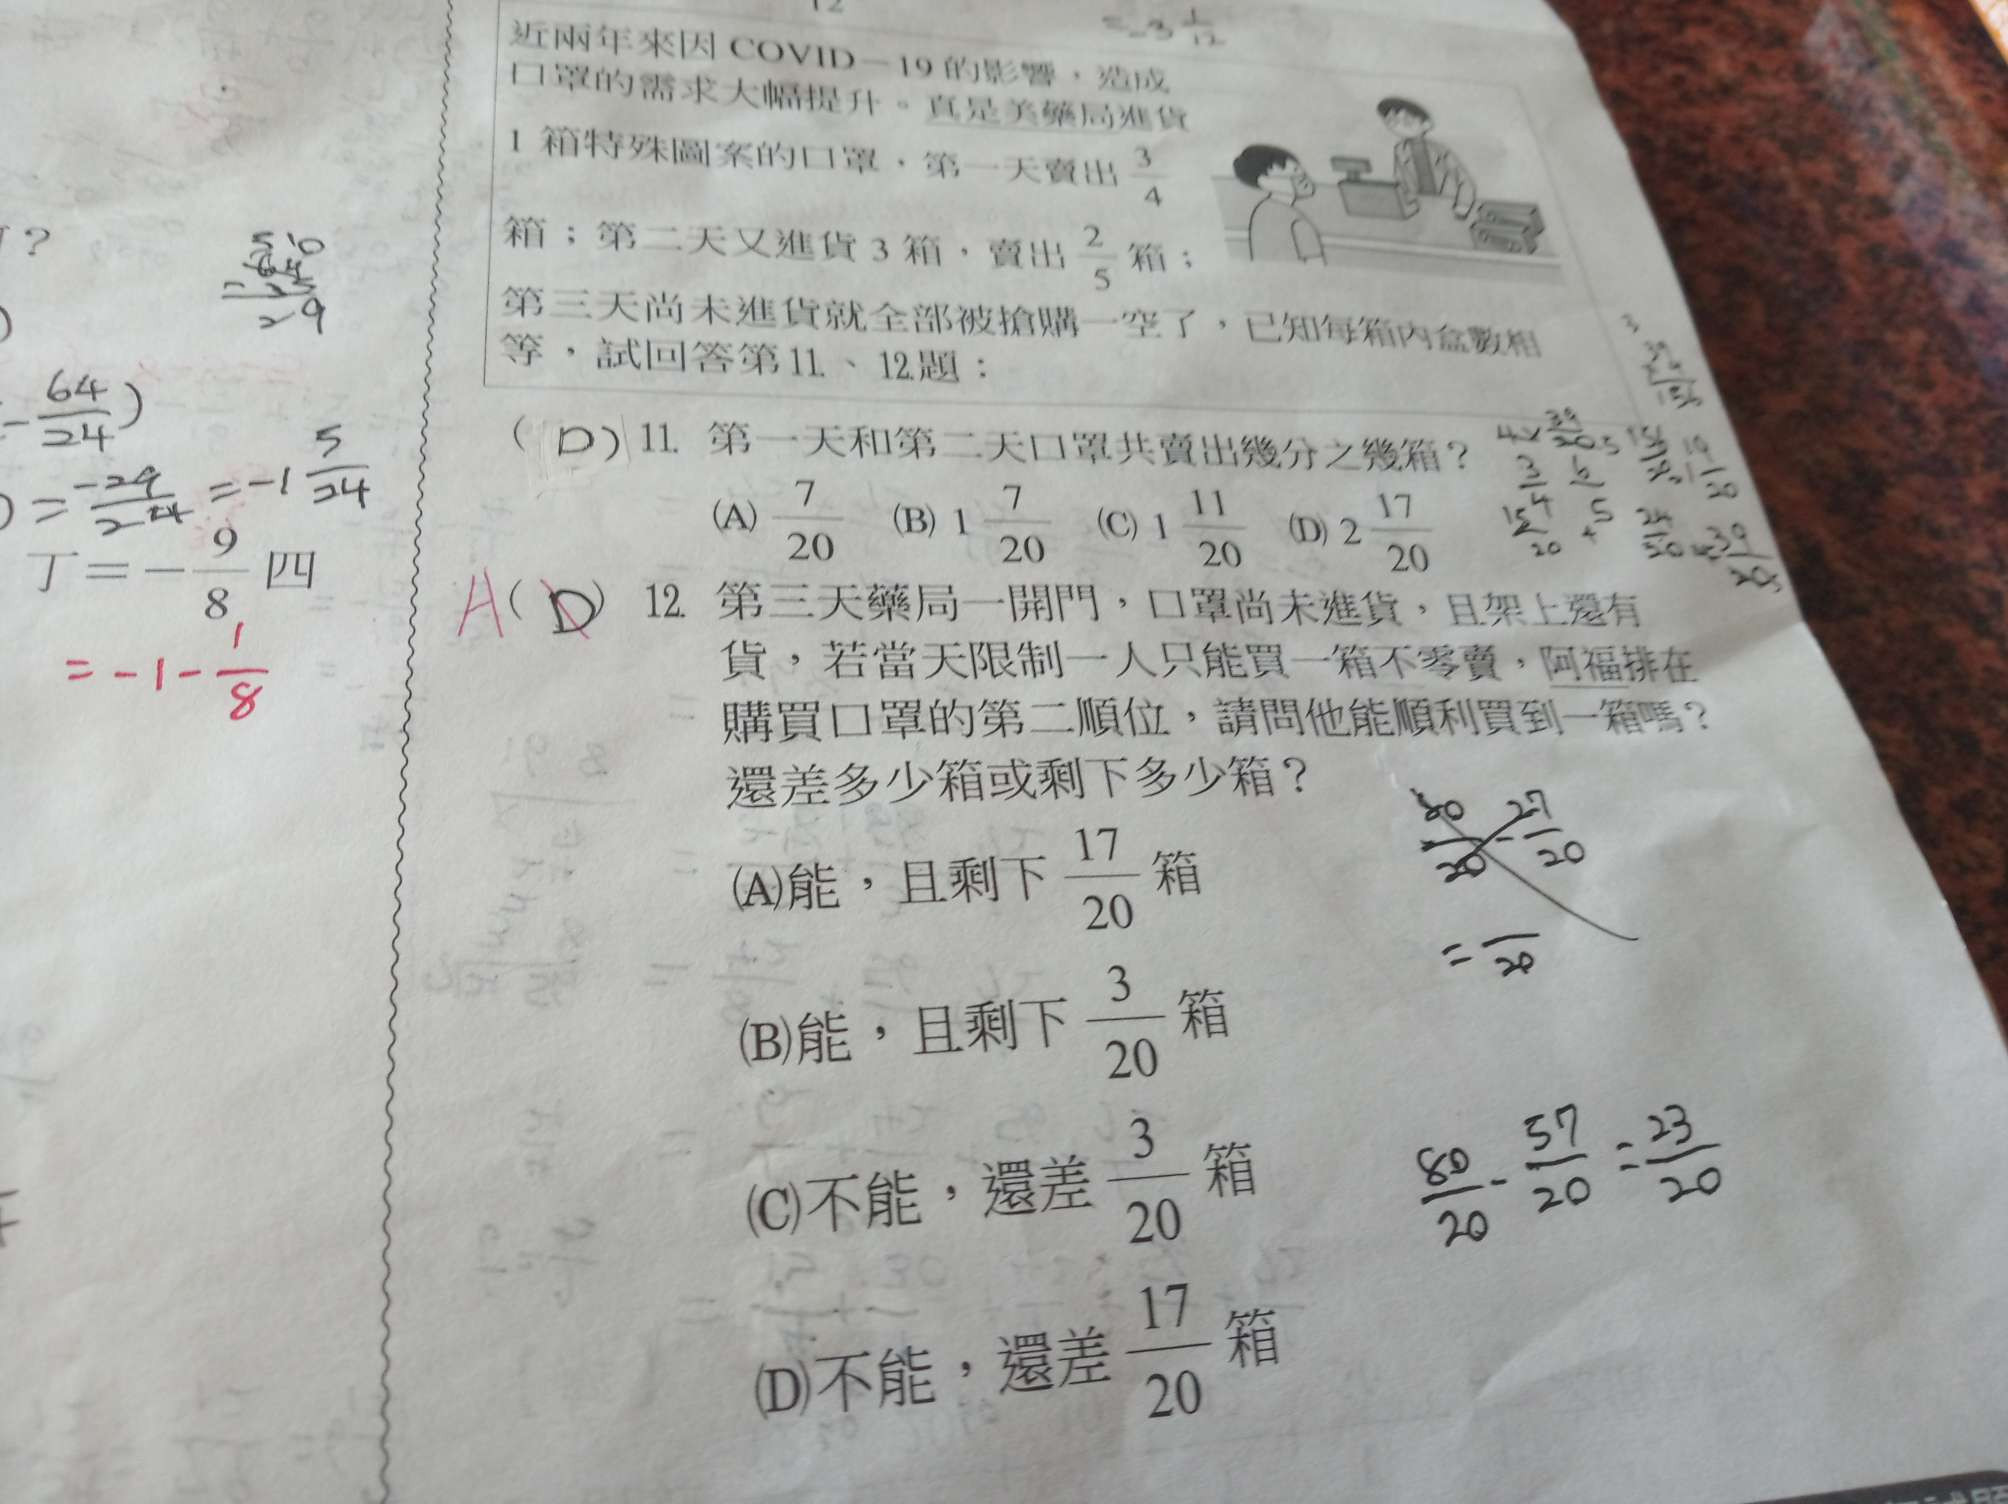 12
= -3 1/12
近兩年來因 COVID-19 的影響，造成
口罩的需求大幅提升。真是美藥局進貨
1 箱特殊圖案的口罩，第一天賣出 3/4
箱；第二天又進貨 3 箱，賣出 2/5 箱；
第三天尚未進貨就全部被搶購一空了，已知每箱內盒數相
等，試回答第11.、12.題：
(D) 11. 第一天和第二天口罩共賣出幾分之幾箱？
(A) 7/20 (B) 1 7/20 (C) 1 11/20 (D) 2 17/20
A(D) 12. 第三天藥局一開門，口罩尚未進貨，且架上還有
貨，若當天限制一人只能買一箱不零賣，阿福排在
購買口罩的第二順位，請問他能順利買到一箱嗎？
還差多少箱或剩下多少箱？
(A)能，且剩下 17/20 箱
(B)能，且剩下 3/20 箱
(C)不能，還差 3/20 箱
(D)不能，還差 17/20 箱
80/20 - 27/20
= /20
80/20 - 57/20 = 23/20
?
- 64/24)
= -29/24 = -1 5/24
丁 = - 9/8 四
= -1 - 1/8